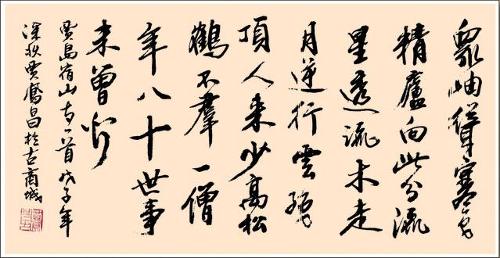 眾岫聳寒色
精廬向此分流
星透疏木走
月逆行雲絕
頂人來少高松
鶴不羣一僧
年八十世事
未曾聞
賈島宿山寺一首戊子年
深秋賈昌於古商城